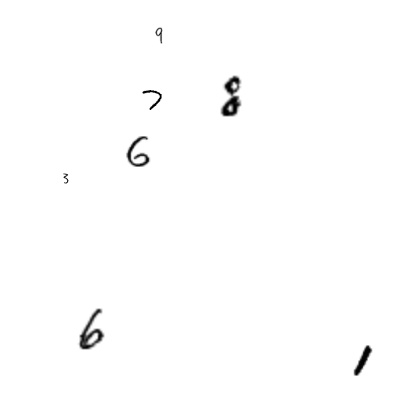 9
7 8
6
3
6
1